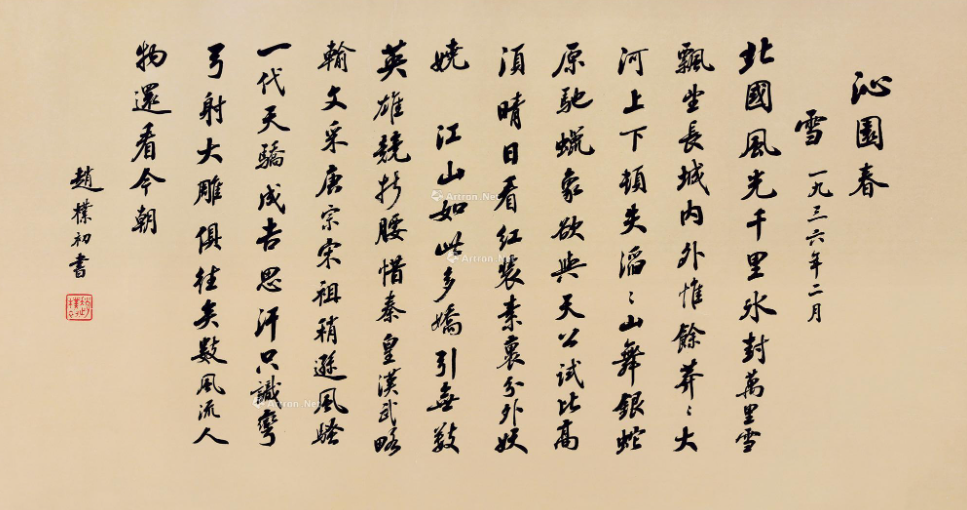 沁園春
雪 一九三六年二月
北國風光千里冰封萬里雪
飄望長城内外惟餘莽〻大
河上下頓失滔〻山舞銀蛇
原馳蠟象欲與天公試比高
須晴日看紅裝素裹分外妖
嬈 江山如此多嬌引無數
英雄競折腰惜秦皇漢武略
輸文采唐宗宋祖稍遜風騷
一代天驕成吉思汗只識彎
弓射大雕俱往矣數風流人
物還看今朝
趙樸初書
Artron.Net
Artron.Net
Artron.Net